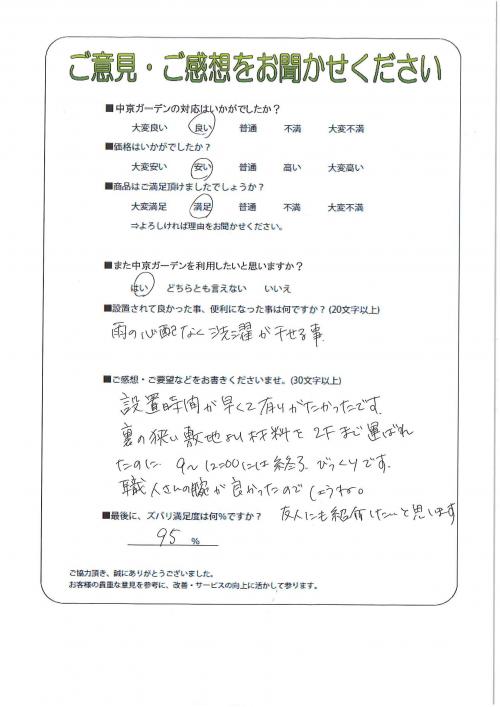 ご意見・ご感想をお聞かせください
■中京ガーデンの対応はいかがでしたか？
大変良い 良い 普通 不満 大変不満
■価格はいかがでしたか？
大変安い 安い 普通 高い 大変高い
■商品はご満足頂けましたでしょうか？
大変満足 満足 普通 不満 大変不満
⇒よろしければ理由をお聞かせください。
■また中京ガーデンを利用したいと思いますか？
はい どちらとも言えない いいえ
■設置されて良かった事、便利になった事は何ですか？(20文字以上)
雨の心配なく洗濯が干せる事.
■ご感想・ご要望などをお書きくださいませ。(30文字以上)
設置時間が早くて有りがたかったです.
裏の狭い敷地より材料を2Fまで運ばれ
たのに 9〜12:00には終了. びっくりです.
職人さんの腕が良かったのでしょうね。
友人にも紹介したいと思います
■最後に、ズバリ満足度は何％ですか？
95 %
ご協力頂き、誠にありがとうございました。
お客様の貴重な意見を参考に、改善・サービスの向上に活かして参ります。